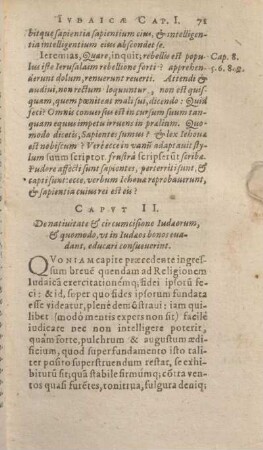 IVDAICÆ CAP. I. 71
bitque sapientia sapientium eius, & intelligen-
tia intelligentium eius abscondet se.
Ieremias, Quare, inquit, rebellis est popu- Cap. 8.
lus iste Ierusalaim rebellione forti? apprehen- 5. 6. 8. 9.
derunt dolum, renuerunt reuerti. Attendi &
audiui, non rectum loquuntur, non est quis-
quam, quem pœniteat mali sui, dicendo: Quid
feci? Omnis conuersus est in cursum suum tan-
quam equus impetu irruens in prælium. Quo-
modo dicitis, Sapientes sumus? & lex Iehouæ
est nobiscum? Verbete in vanũ adaptauit sty-
lum suum scriptor. frustrà scripserũt scribæ.
Pudore affecti sunt sapientes, perterriti sunt, &
capti sunt: ecce, verbum Iehouæ reprobauerunt,
& sapientia cuius rei est eis?
CAPVT II.
De natiuitate & circumcisione Iudæorum,
& quomodo, vt in Iudæos bonos eua-
dant, educari consueuerint.
QVONIAM capite præcedente ingres-
sum breuẽ quendam ad Religionem
Iudaicã exercitationemq́; fidei ipsorũ fe-
ci: & id, super quo fides ipsorum fundata
esse videatur, plenè demõstraui: iam qui-
libet (modò mentis expers non sit) facilè
iudicare nec non intelligere poterit,
quàm forte, pulchrum & augustum ædi-
ficium, quod superfundamento isto tali-
ter posito superstruendum restat, se exhi-
biturũ sit; quã stabile firmúmq́; cõtra ven-
tos quasi furẽtes, tonitrua, fulgura deniq́;